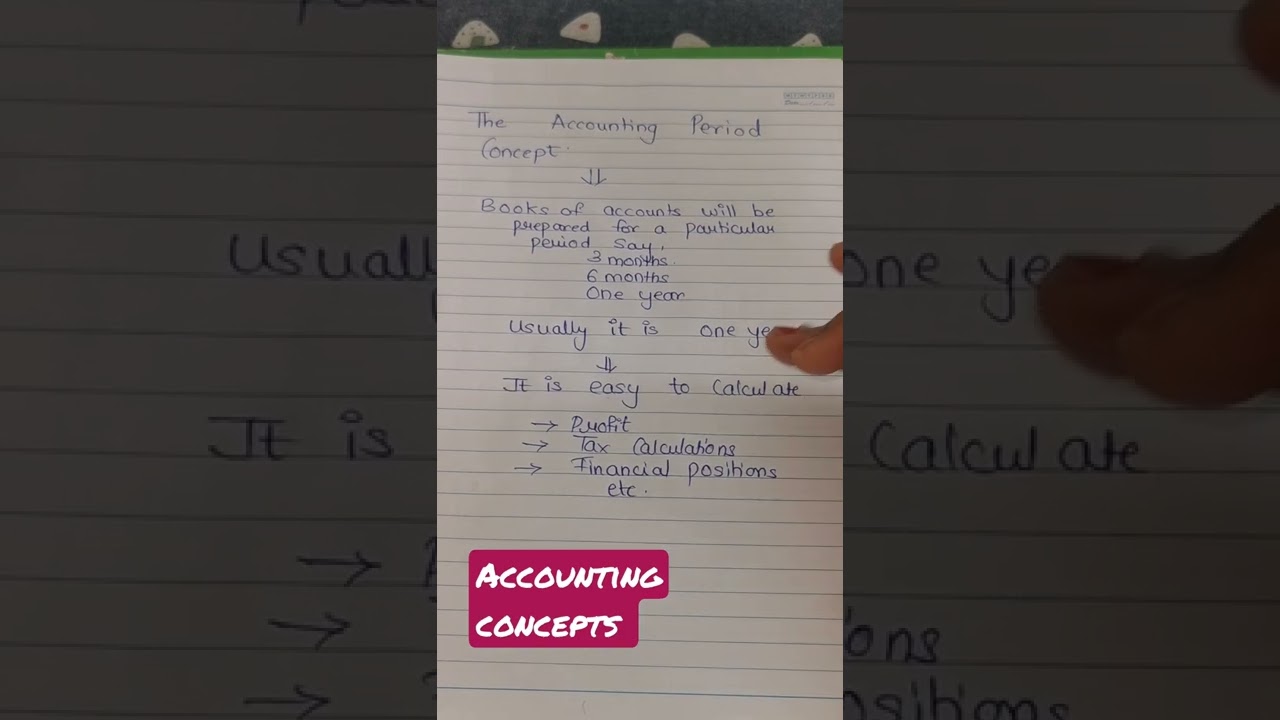 The Accounting Period
Concept.
⇓
Books of accounts will be
prepared for a particular
period say,
3 months.
6 months
One year
Usually it is one ye
⇓
It is easy to Calculate
→ Profit
→ Tax Calculations
→ Financial positions
etc.
ACCOUNTING
CONCEPTS